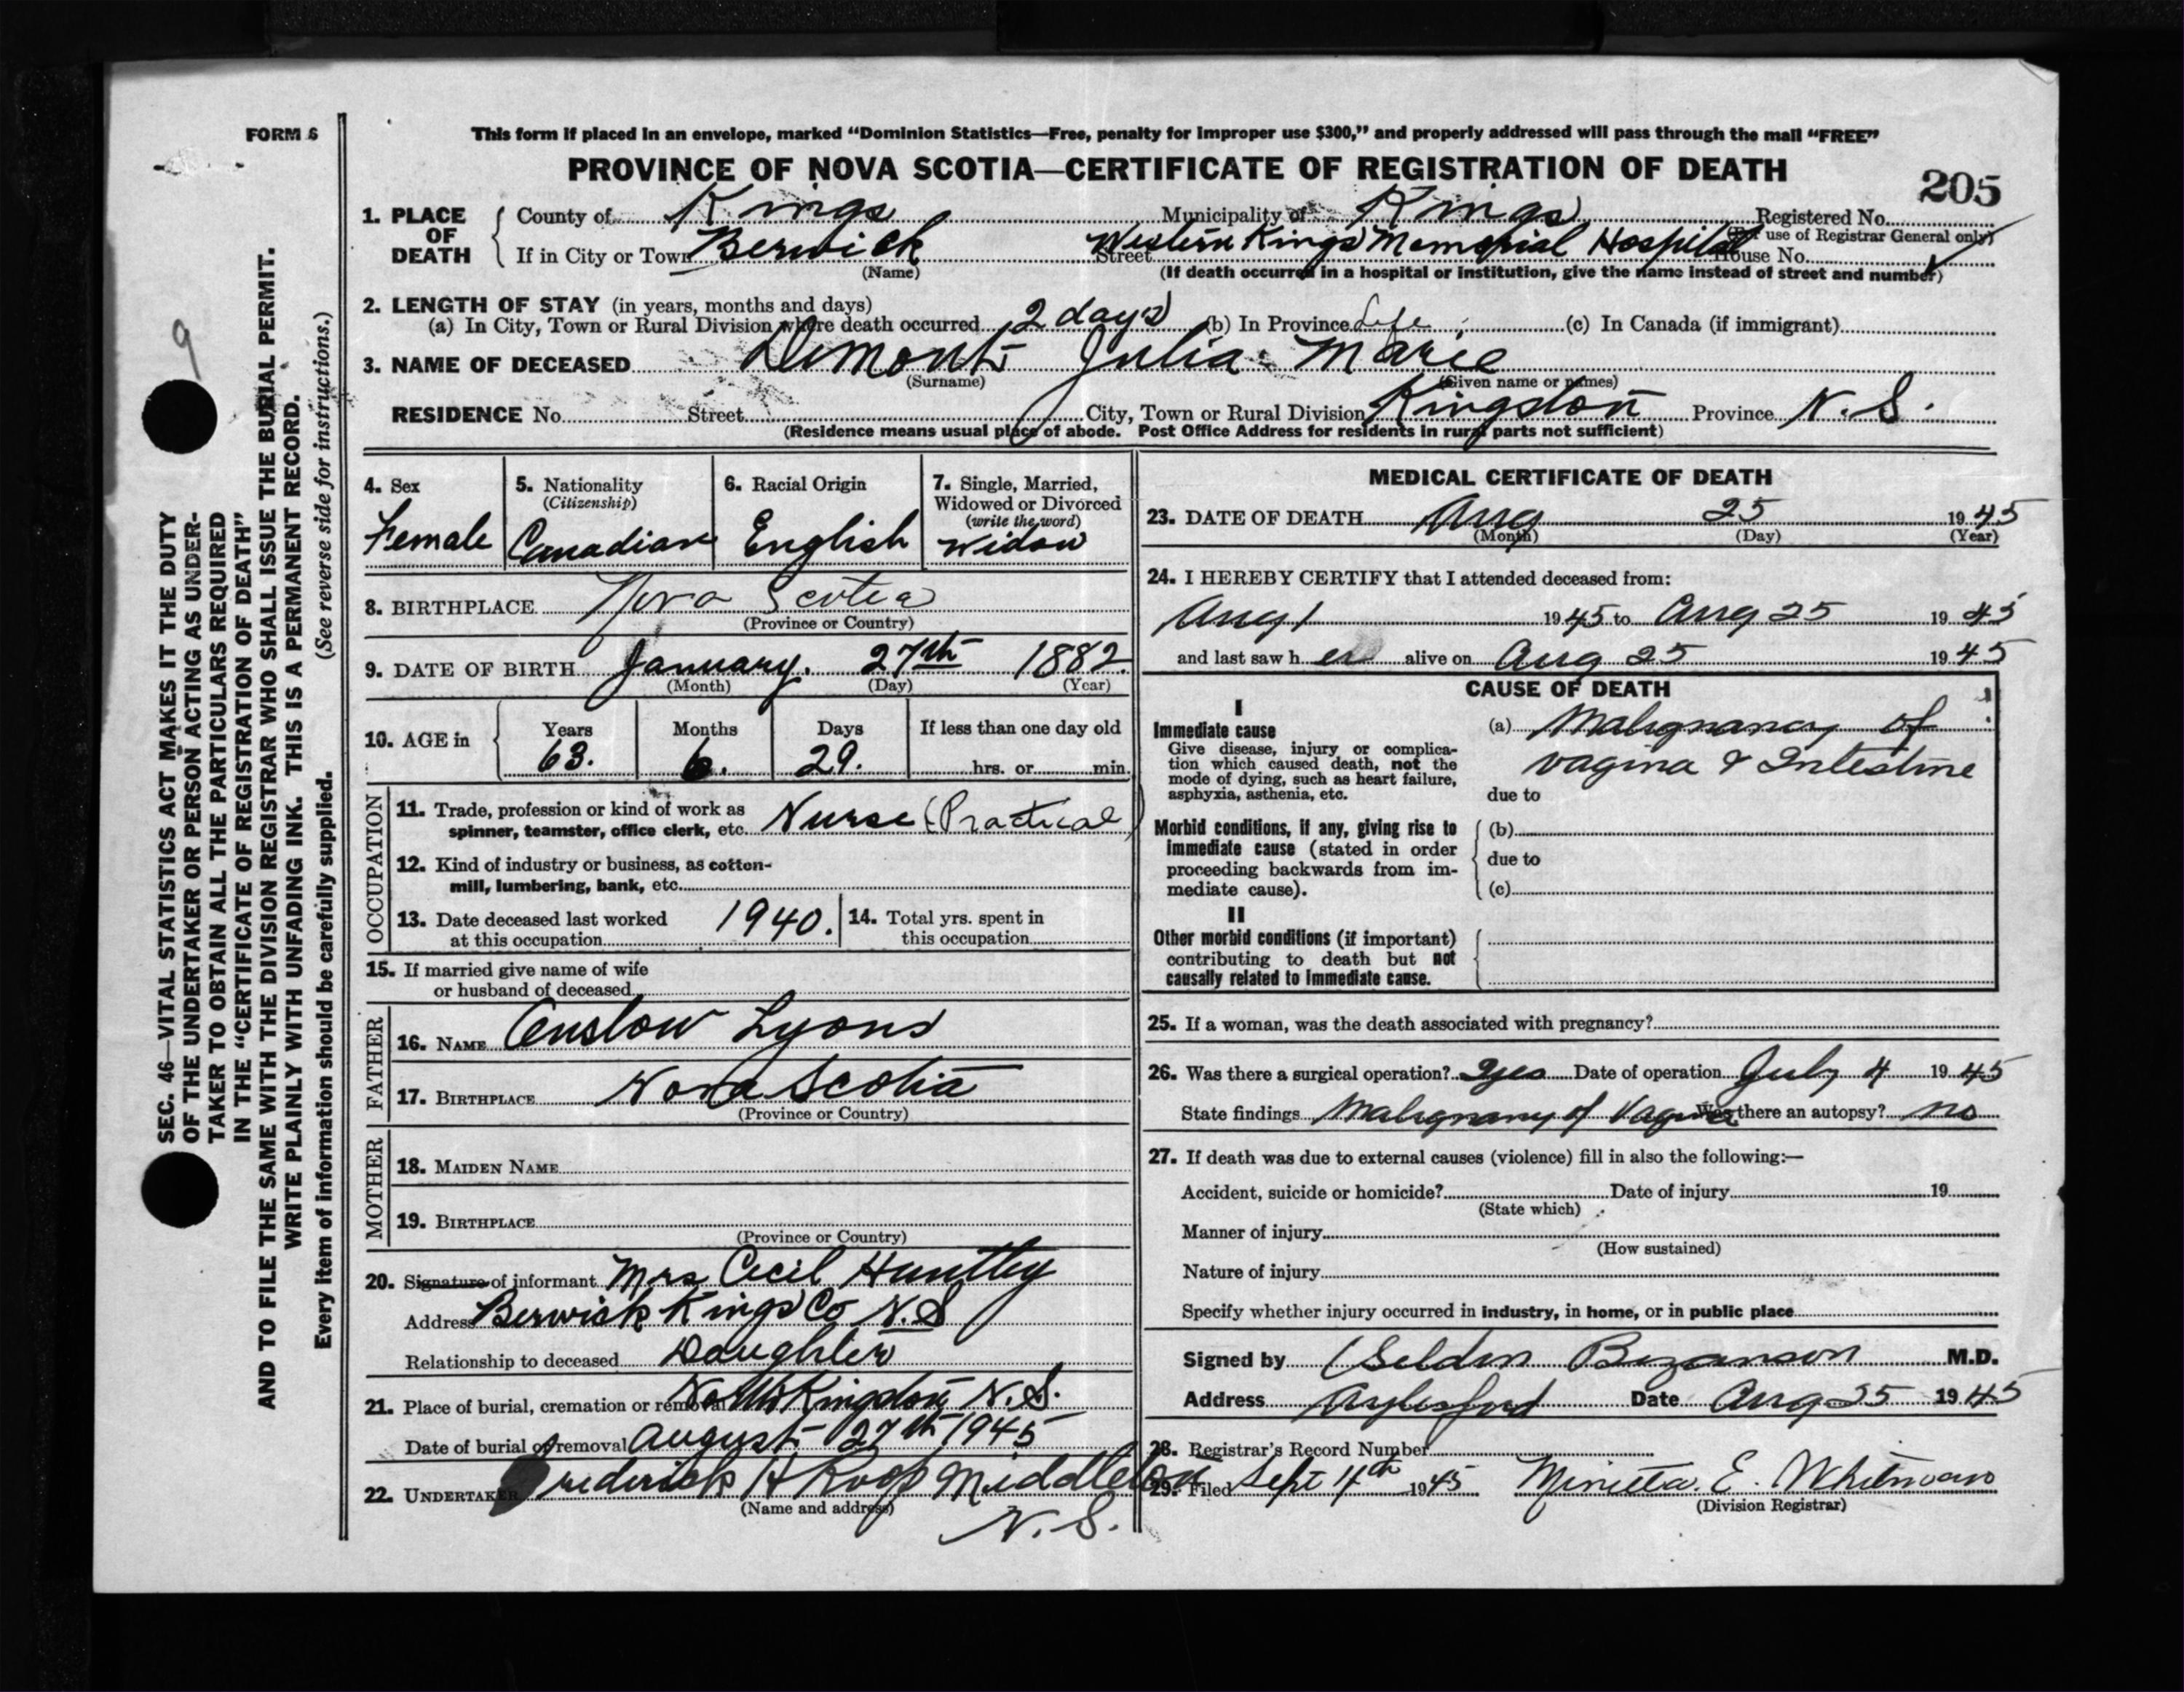 FORM 6
This form if placed in an envelope, marked "Dominion Statistics—Free, penalty for improper use $300," and properly addressed will pass through the mail "FREE"
PROVINCE OF NOVA SCOTIA—CERTIFICATE OF REGISTRATION OF DEATH
205
1. PLACE OF DEATH
County of Kings Municipality of Kings Registered No.
(For use of Registrar General only)
If in City or Town Berwick Street Western Kings Memorial Hospital House No.
(Name) (If death occurred in a hospital or institution, give the name instead of street and number)
2. LENGTH OF STAY (in years, months and days)
(a) In City, Town or Rural Division where death occurred 2 days (b) In Province Life (c) In Canada (if immigrant)
3. NAME OF DECEASED Demont Julia Marie
(Surname) (Given name or names)
RESIDENCE No. Street City, Town or Rural Division Kingston Province N.S.
(Residence means usual place of abode. Post Office Address for residents in rural parts not sufficient)
4. Sex
Female
5. Nationality
(Citizenship)
Canadian
6. Racial Origin
English
7. Single, Married,
Widowed or Divorced
(write the word)
Widow
8. BIRTHPLACE Nova Scotia
(Province or Country)
9. DATE OF BIRTH January 27th 1882
(Month) (Day) (Year)
10. AGE in
Years Months Days If less than one day old
63. 6. 29. hrs. or min.
OCCUPATION
11. Trade, profession or kind of work as
spinner, teamster, office clerk, etc. Nurse (Practical)
12. Kind of industry or business, as cotton-
mill, lumbering, bank, etc.
13. Date deceased last worked
at this occupation 1940.
14. Total yrs. spent in
this occupation
15. If married give name of wife
or husband of deceased
FATHER
16. NAME Onslow Lyons
17. BIRTHPLACE Nova Scotia
(Province or Country)
MOTHER
18. MAIDEN NAME
19. BIRTHPLACE
(Province or Country)
20. Signature of informant Mrs Cecil Huntley
Address Berwick Kings Co N.S
Relationship to deceased Daughter
21. Place of burial, cremation or removal North Kingston N.S.
Date of burial or removal August 27th 1945
22. UNDERTAKER Frederick H Roop Middleton
(Name and address)
N.S.
MEDICAL CERTIFICATE OF DEATH
23. DATE OF DEATH Aug 25 1945
(Month) (Day) (Year)
24. I HEREBY CERTIFY that I attended deceased from:
Aug 1 1945 to Aug 25 1945
and last saw her alive on Aug 25 1945
CAUSE OF DEATH
I
Immediate cause
Give disease, injury or complica-
tion which caused death, not the
mode of dying, such as heart failure,
asphyxia, asthenia, etc.
(a) Malignancy of
vagina & Intestine
due to
Morbid conditions, if any, giving rise to
immediate cause (stated in order
proceeding backwards from im-
mediate cause).
(b)
due to
(c)
II
Other morbid conditions (if important)
contributing to death but not
causally related to immediate cause.
25. If a woman, was the death associated with pregnancy?
26. Was there a surgical operation? Yes Date of operation July 4 1945
State findings Malignancy of Vagina Was there an autopsy? no
27. If death was due to external causes (violence) fill in also the following:—
Accident, suicide or homicide? Date of injury 19
(State which)
Manner of injury
(How sustained)
Nature of injury
Specify whether injury occurred in industry, in home, or in public place
Signed by Seldon Bezanson M.D.
Address Aylesford Date Aug 25 1945
28. Registrar's Record Number
29. Filed Sept 4th 1945 E. Whitman
(Division Registrar)
9
SEC. 46—VITAL STATISTICS ACT MAKES IT THE DUTY
OF THE UNDERTAKER OR PERSON ACTING AS UNDER-
TAKER TO OBTAIN ALL THE PARTICULARS REQUIRED
IN THE "CERTIFICATE OF REGISTRATION OF DEATH"
AND TO FILE THE SAME WITH THE DIVISION REGISTRAR WHO SHALL ISSUE THE BURIAL PERMIT.
WRITE PLAINLY WITH UNFADING INK. THIS IS A PERMANENT RECORD.
Every item of information should be carefully supplied. (See reverse side for instructions.)